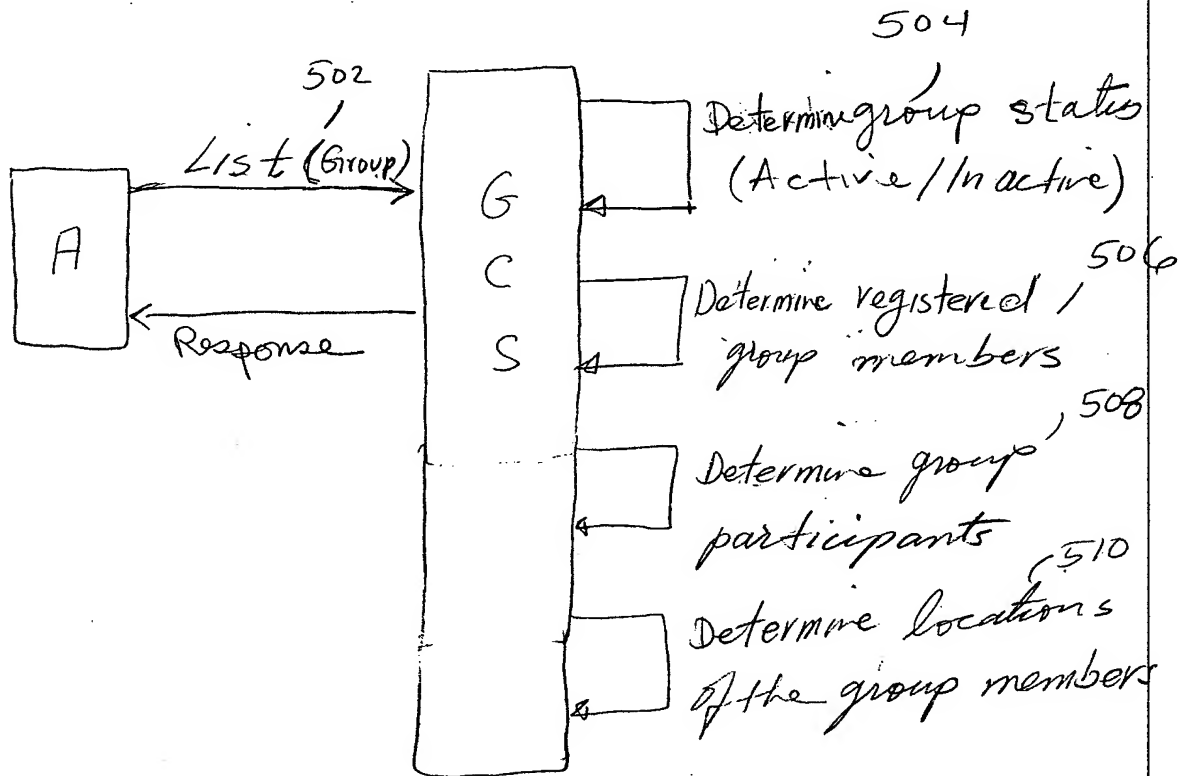 504
502
List (Group)
Determine group status
(Active/Inactive)
A
G
C
S
506
Determine registered
group members
Response
508
Determine group
participants
510
Determine locations
of the group members